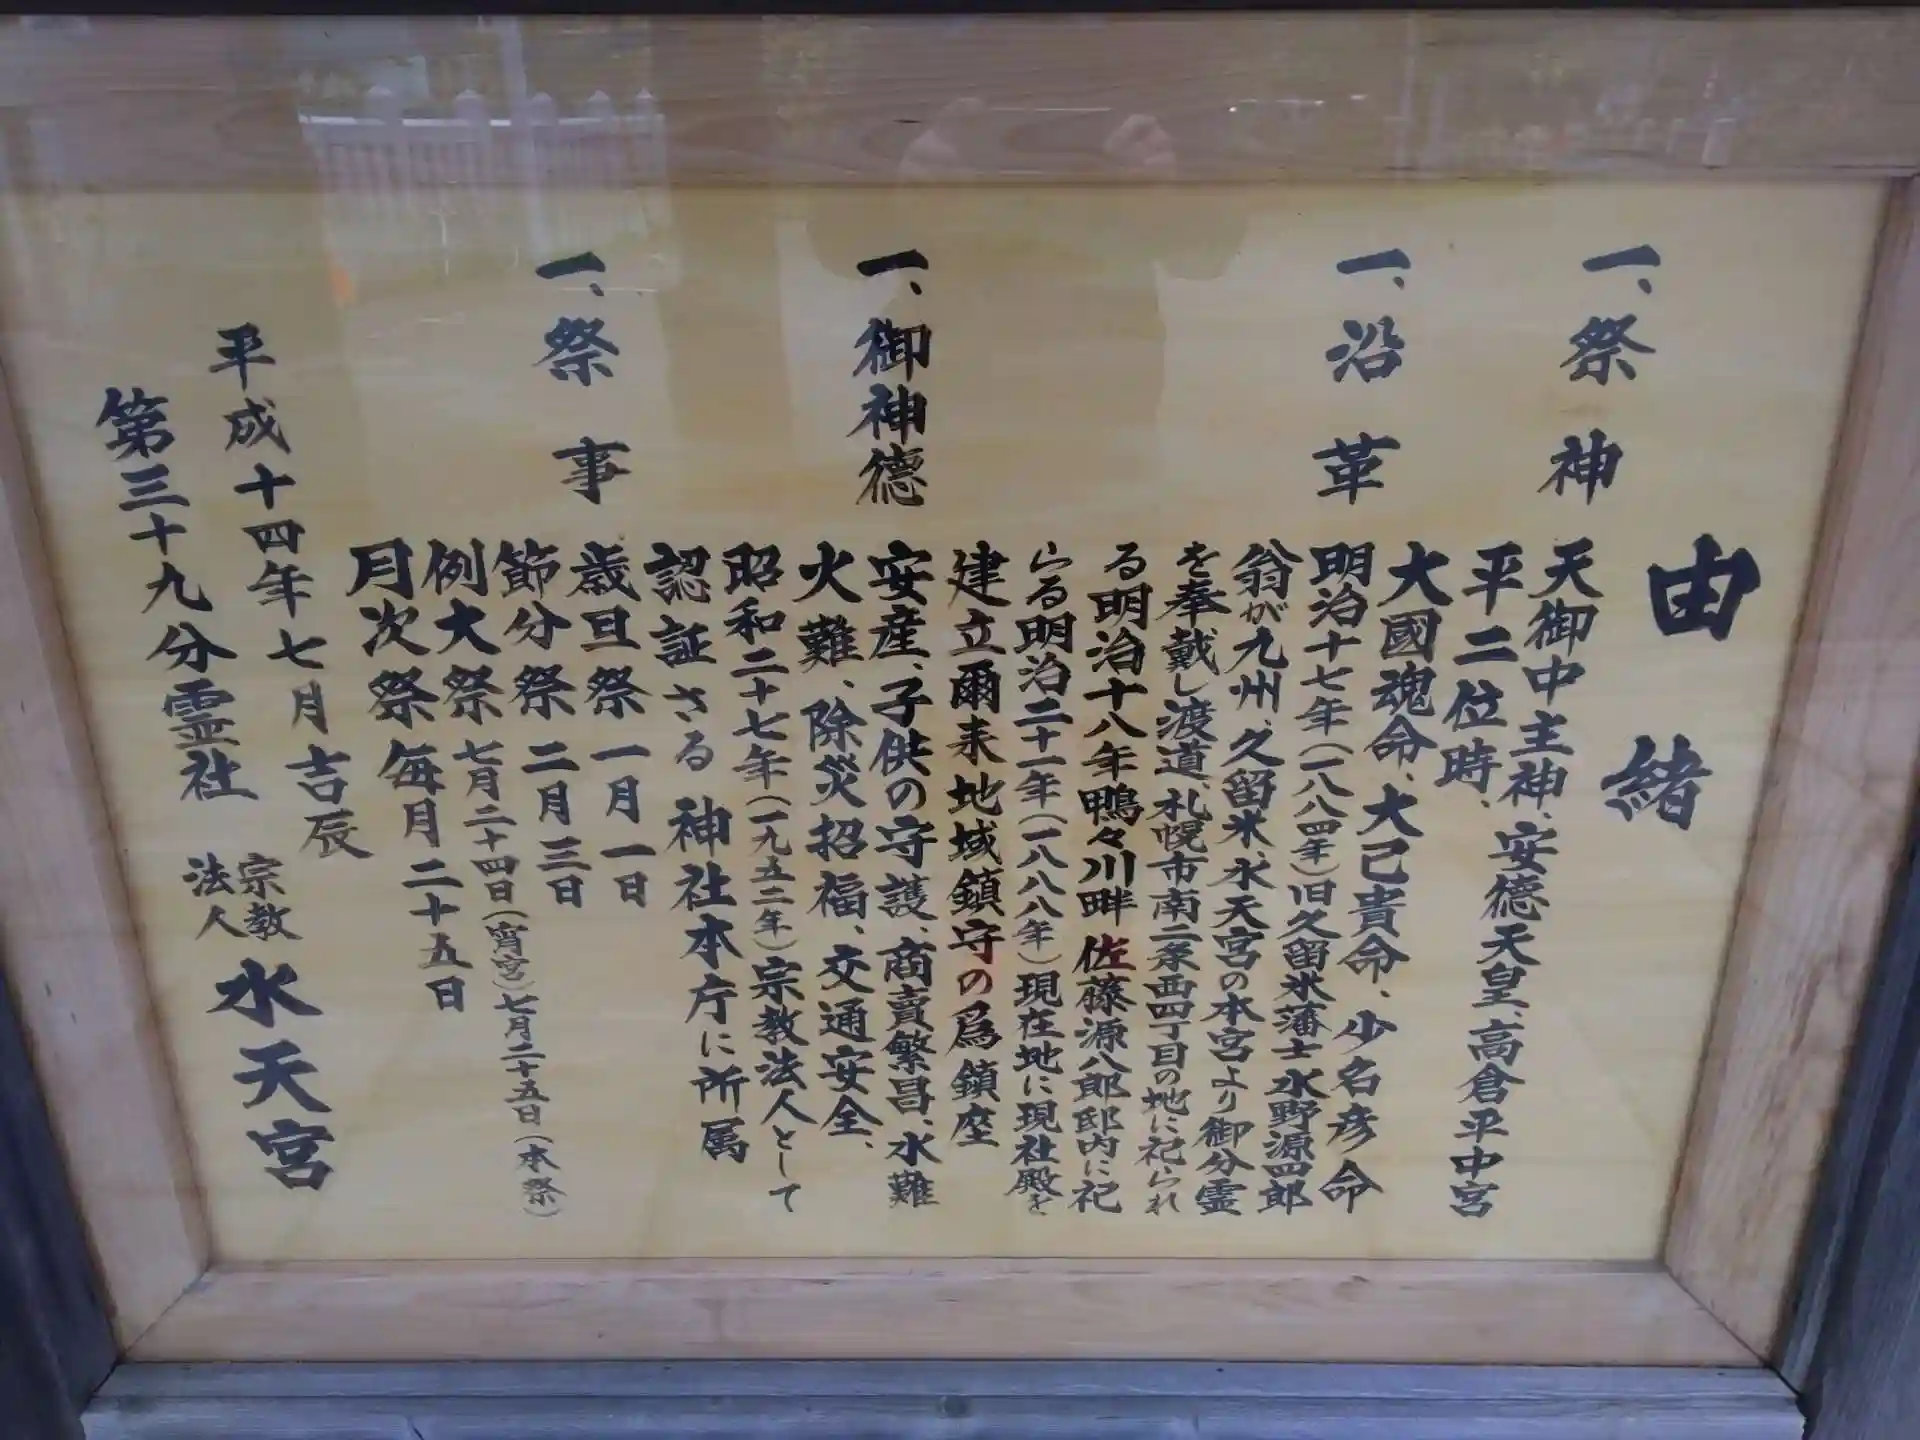 由緒
一、祭神
天御中主神、安徳天皇、高倉平中宮
平二位時、
大國魂命、大己貴命、少名彦命
一、沿革
明治十七年(一八八四年)旧久留米藩士水野源四郎
翁が九州、久留米、水天宮の本宮より御分霊
を奉戴し渡道、札幌市南二条西四丁目の地に祀られ
る明治十八年鴨々川畔佐藤源八郎邸内に祀
らる明治二十一年(一八八八年)現在地に現社殿を
建立爾来地域鎮守の為鎮座
一、御神徳
安産、子供の守護、商賣繁昌、水難
火難、除災招福、交通安全、
昭和二十七年(一九五二年)宗教法人として
認証さる神社本庁に所属
一、祭事
歳旦祭 一月一日
節分祭 二月三日
例大祭 七月二十四日(宵宮)七月二十五日(本祭)
月次祭 毎月二十五日
平成十四年七月吉辰
第三十九分霊社 宗教法人 水天宮